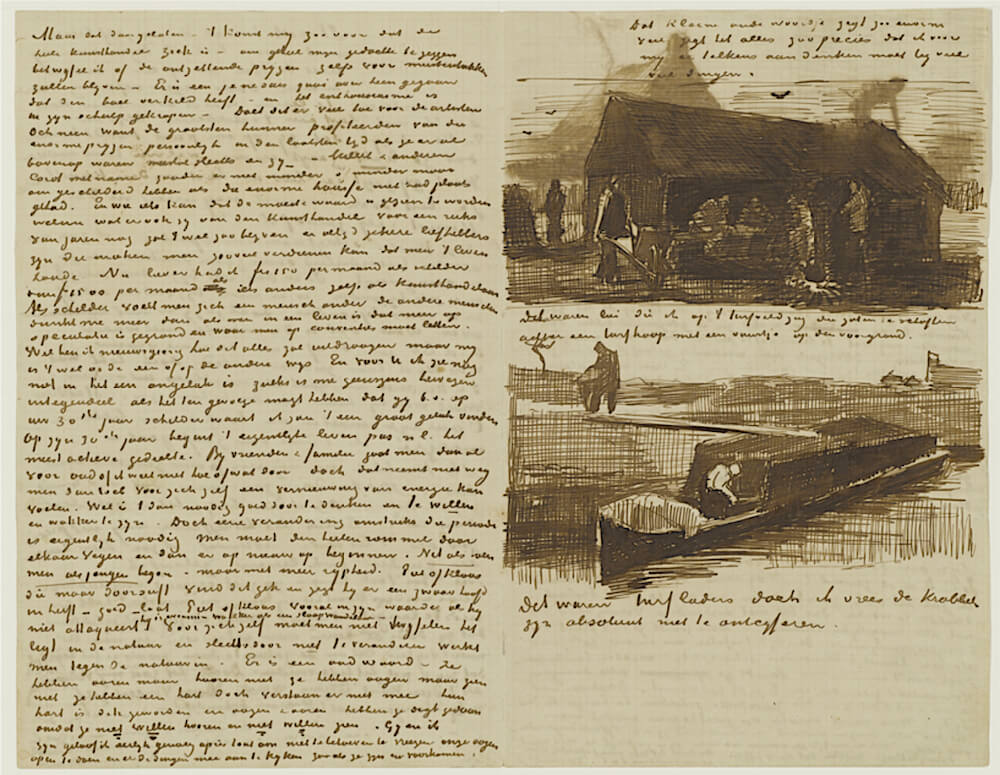 Maar dat daargelaten – 't komt mij zoo voor dat de
heele kunsthandel ziek is – om geheel mijn gedachte te zeggen
betwijfel ik of de ontzettende prijzen zelfs voor meesterstukken
zullen blijven – Er is een je ne sais quoi over heen gegaan
dat den boel verkild heeft – en het enthousiasme is
in zijn schulp gekropen – Doet dit er veel toe voor de artisten
Och neen want de grootsten hunner profiteerden van die
enorme prijzen persoonlijk in den laatsten tijd als ze er al
bovenop waren meestal slechts en zij – Millet & anderen
Corot met name zouden er niet minder & minder mooi
om geschilderd hebben als die enorme hausse niet had plaats
gehad. En wie als kan dat de moeite waard is gezien te worden
welnu wat er ook zij van den kunsthandel voor een reeks
van jaren nog zal 't wel zoo blijven er altijd zekere liefhebbers
zijn die maken men zooveel verdienen kan dat men 't leven
houde Nu liever had ik frs 150 per maand als schilder
dan frs 1500 per maand als iets anders zelfs als kunsthandelaar
Als schilder voelt men zich een mensch onder de andere menschen
dunkt me meer dan als men in een leven is dat meer op
speculatie is gegrond en waar men op conventies moet letten.
Wel ben ik nieuwsgierig hoe dit alles zal uitdraaijen maar mij
is 't wel op de een of op de andere wijs En voor U ik zie nog
niet in het een ongeluk is zulks is me geenszins bewezen
integendeel als het ten gevolge mogt hebben dat gij b.v. op
uw 30ste jaar schilder waart ik zou 't een groot geluk vinden
Op zijn 30ste jaar begint 't eigenlijke leven pas n.l. het
meest actieve gedeelte. Bij vrienden & familie gaat men daar al
voor oud of ik weet niet hoe of wat door doch dat neemt niet weg
men dan toch voor zich zelf een vernieuwing van energie kan
voelen. Wel is 't dan noodig goed door te denken en te willen
en wakker te zijn. Doch eene verandering omstreeks die periode
is eigenlijk noodig men moet den heelen rommel door
elkaar vegen en dan er op nieuw op beginnen. Net als men
men als jongen begon – maar met meer rijpheid. Piet of Klaas
die maar doorsuft vind dat gek en zegt hij er een zwaar hoofd
in heeft – goed – laat Piet of Klaas vooral in zijn waarde als hij
niet attaqueert
voor zich zelf moet men niet twijfelen het
legt in de natuur en slechts door niet te veranderen werkt
men tegen de natuur in. Er is een oud woord – ze
hebben ooren maar hooren niet ze hebben oogen maar zien
niet ze hebben een hart doch verstaan er niet mee hun
hart is dik geworden en oogen & ooren hebben ze digt gedaan
omdat ze niet willen hooren en niet willen zien. Gij en ik
zijn geloof ik eerlijk genoeg après tout om niet te behoeven te vreezen onze oogen
open te doen en er de dingen mee aan te kijken zooals ze zijn en voorkomen.
Dat kleine oude woordje zegt zoo enorm
veel zegt het alles zoo precies dat ik voor
mij er telkens aan denken moet bij veel
veel dingen.
Dit waren lui die ik op 't turfveld zag die zaten te schoften
achter een turfhoop met een vuurtje op den voorgrond.
Dit waren turfladers doch ik vrees de krabbels
zijn absoluut niet te ontcijferen.